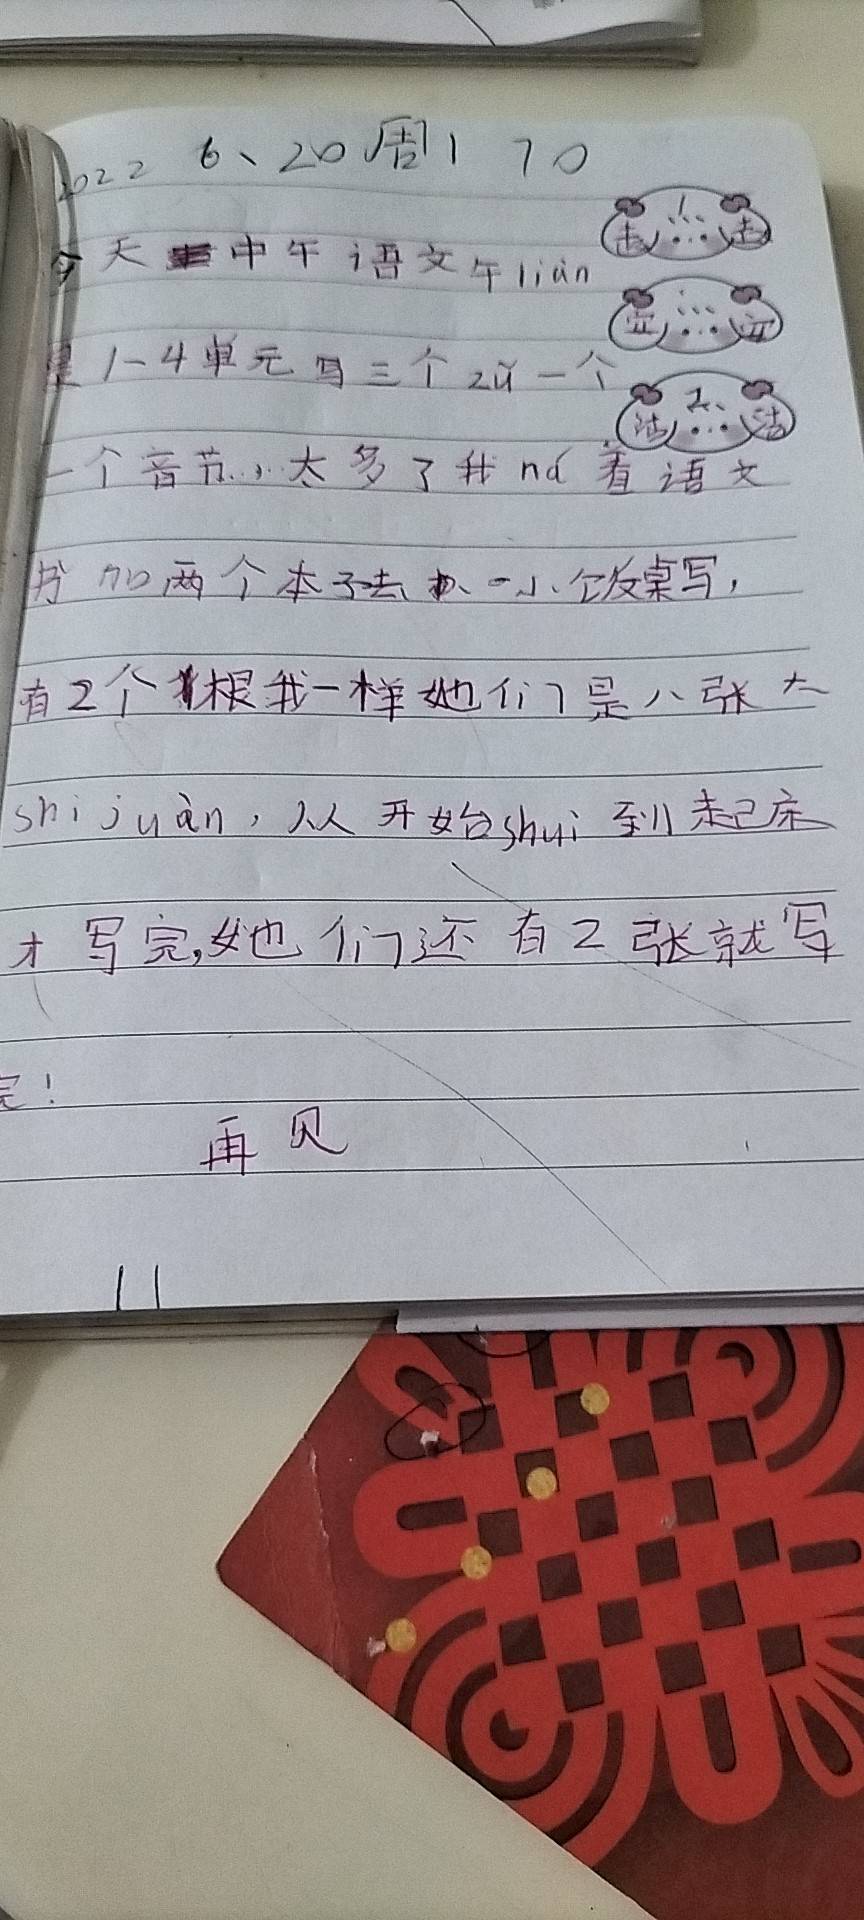 2022 6、20周1 70
今天中午语文午liàn
是1-4单元写三个zǔ一个
一个音节...太多了我ná着语文
书加两个本子去小饭桌写，
有2个根我一样她们是八张大
shijuàn，从开始shui到起床
才写完,她们还有2张就写
完！
再见